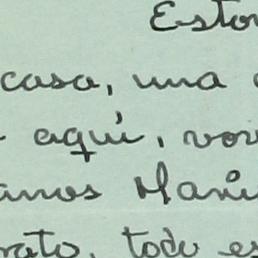 Esto
casa, una
aquí, vo
anos Mari
rato, todo es